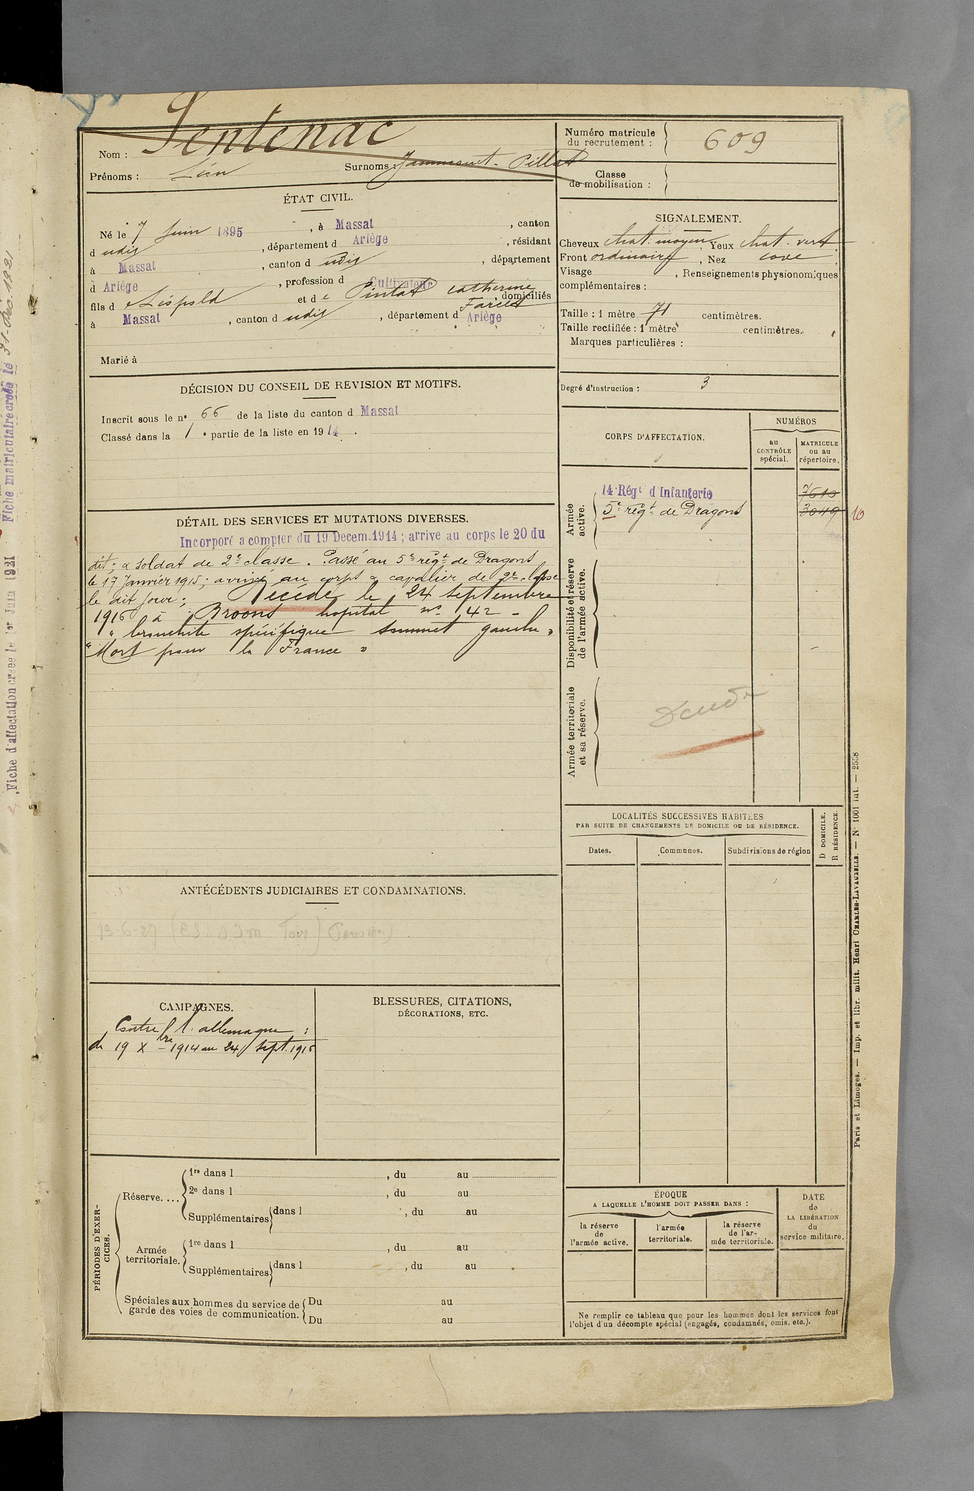 Sentenac
Nom :
Prénoms : Léon
Surnoms
Numéro matricule
du recrutement :
609
Classe
de mobilisation :
ÉTAT CIVIL.
Né le 7 Juin 1895 , à Massat , canton
d udig , département d Ariège , résidant
à Massat , canton d udig , département
d Ariège , profession d Cultivateur
fils d e Léopold et d e Pintat Catherine , domiciliés
à Massat , canton d udig , département d Ariège
Marié à
SIGNALEMENT.
Cheveux chat. moyens , Yeux chat. vert
Front ordinaire , Nez cave
Visage , Renseignements physionomiques
complémentaires :
Taille : 1 mètre 71 centimètres.
Taille rectifiée : 1 mètre centimètres.
Marques particulières :
Degré d'instruction : 3
DÉCISION DU CONSEIL DE REVISION ET MOTIFS.
Inscrit sous le n° 66 de la liste du canton d Massat
Classé dans la 1 e partie de la liste en 1914 .
CORPS D'AFFECTATION.
NUMÉROS
au
CONTRÔLE
spécial.
MATRICULE
ou au
répertoire.
Armée
active.
14 Régt d Infanterie
5e régt de Dragons
7610
3049
10
Disponibilité et réserve
de l'armée active.
Armée territoriale
et sa réserve.
DÉTAIL DES SERVICES ET MUTATIONS DIVERSES.
Incorporé a compter du 19 Decem. 1914 ; arrive au corps le 20 du
dit ; a soldat de 2e classe. Passé au 5e régt de Dragons
le 17 Janvier 1915 ; arrivé au corps a cavalier de 2e classe
le dit jour ; Décédé le 24 septembre
1916 à Broons hopital n° 42 -
" bronchite spécifique sommet gauche "
" Mort pour la France "
LOCALITÉS SUCCESSIVES HABITÉES
PAR SUITE DE CHANGEMENTS DE DOMICILE OU DE RÉSIDENCE.
Dates.
Communes.
Subdivisions de région
D DOMICILE.
R RÉSIDENCE.
ANTÉCÉDENTS JUDICIAIRES ET CONDAMNATIONS.
CAMPAGNES.
Contre l'allemagne :
du 19 Xbre 1914 au 24 Sept. 1916
BLESSURES, CITATIONS,
DÉCORATIONS, ETC.
PÉRIODES D'EXER-
CICES.
Réserve....
1re dans l , du au
2e dans l , du au
Supplémentaires dans l , du au
Armée
territoriale.
1re dans l , du au
Supplémentaires dans l , du au
Spéciales aux hommes du service de
garde des voies de communication.
Du au
Du au
ÉPOQUE
A LAQUELLE L'HOMME DOIT PASSER DANS :
la réserve
de
l'armée active.
l'armée
territoriale.
la réserve
de l'ar-
mée territoriale.
DATE
de
LA LIBÉRATION
du
service militaire.
Ne remplir ce tableau que pour les hommes dont les services font
l'objet d'un décompte spécial (engagés, condamnés, omis, etc.).
Paris et Limoges. — Imp. et libr. milit. Henri CHARLES-LAVAUZELLE. — N° 1001 int. — 2558
Fiche d'affectation créée le 1er Juin 1921
Fiche matriculaire créée le 31 Déc. 1921